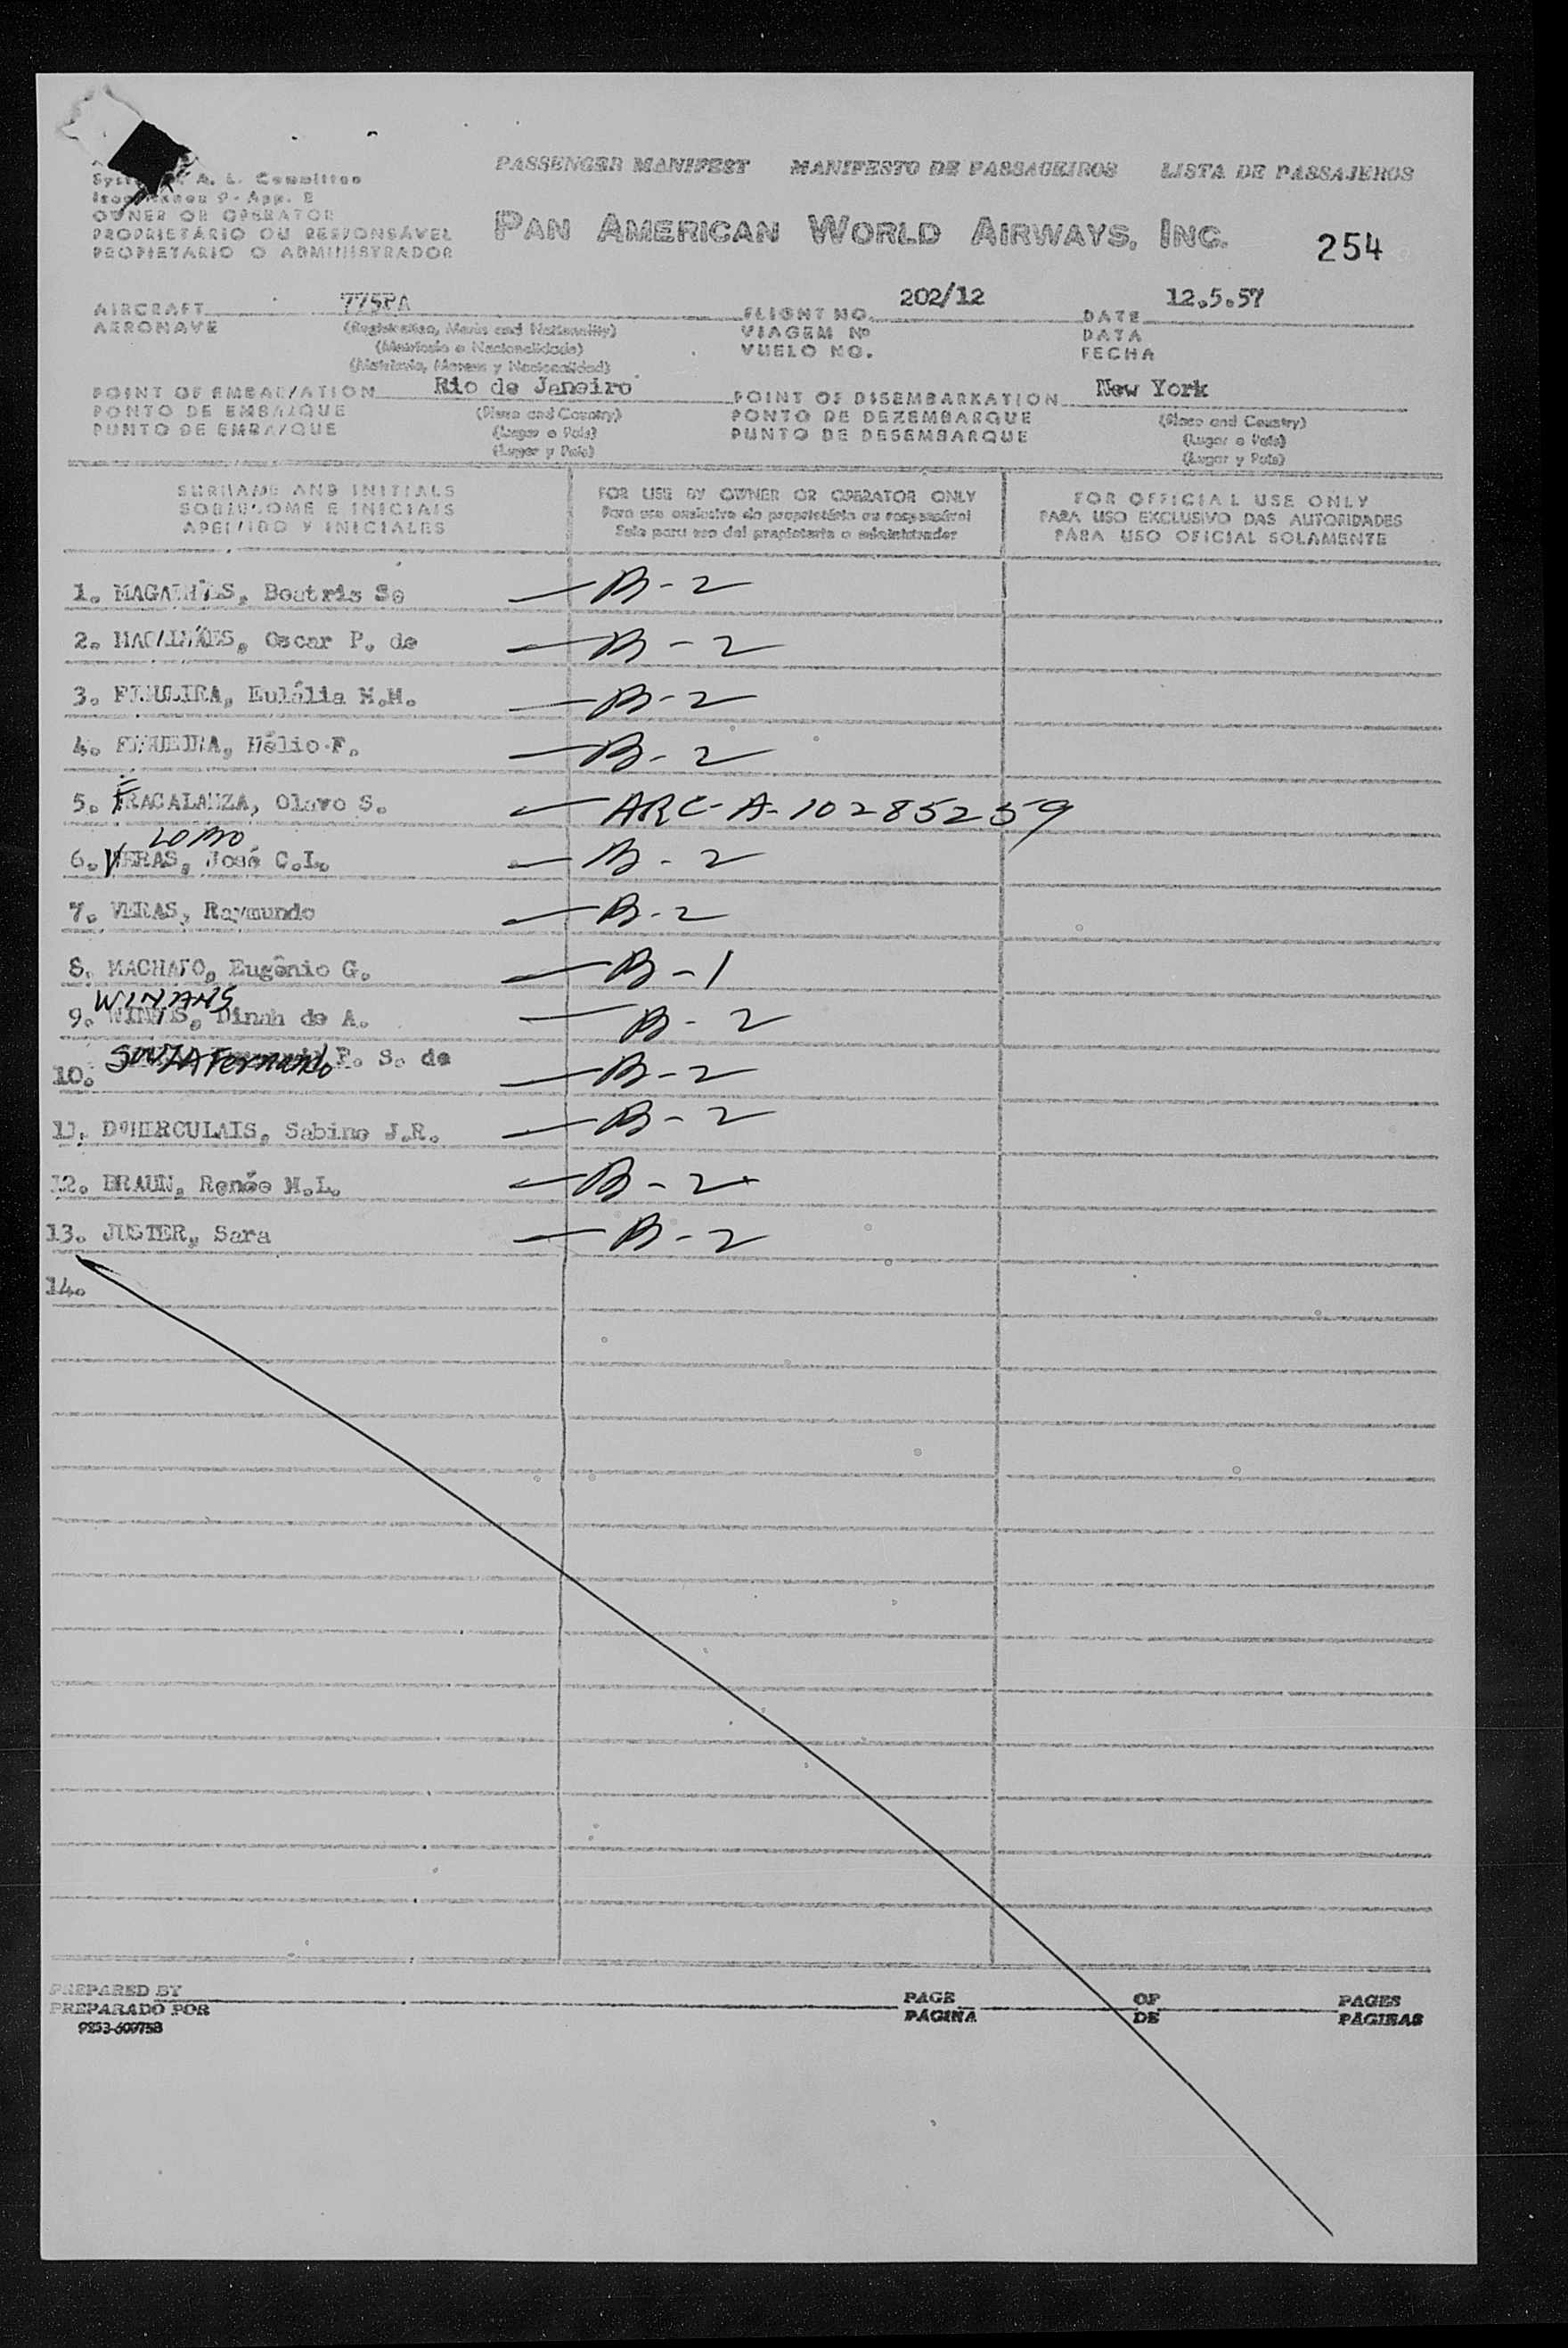 PASSENGER MANIFEST MANIFESTO DE PASSAGEIROS LISTA DE PASSAJEROS
A. L. Committee
9 - App. 2
OWNER OR OPERATOR
PROPRIETÁRIO OU RESPONSÁVEL
PROPIETARIO O ADMINISTRADOR
PAN AMERICAN WORLD AIRWAYS, INC.
254
AIRCRAFT 775PA FLIGHT NO. 202/12 DATE 12.5.57
AERONAVE (Registration, Marks and Nationality) VIAGEM Nº DATA
(Matrícula e Nacionalidade) VUELO NO. FECHA
(Matrícula, Marcas y Nacionalidad)
POINT OF EMBARKATION Rio de Janeiro POINT OF DISEMBARKATION New York
PONTO DE EMBARQUE (Place and Country) PONTO DE DEZEMBARQUE (Place and Country)
PUNTO DE EMBARQUE (Lugar e País) PUNTO DE DESEMBARQUE (Lugar e País)
(Lugar y País) (Lugar y País)
SURNAME AND INITIALS FOR USE BY OWNER OR OPERATOR ONLY FOR OFFICIAL USE ONLY
SOBRENOME E INICIAIS Para uso exclusivo do proprietário ou responsável PARA USO EXCLUSIVO DAS AUTORIDADES
APELLIDO Y INICIALES Solo para uso del propietario o administrador PARA USO OFICIAL SOLAMENTE
1. MAGALHÃES, Beatris S. B-2
2. MAGALHÃES, Oscar P. de B-2
3. FIGUEIRA, Eulália M.M. B-2
4. FIGUEIRA, Hélio F. B-2
5. FRACALANZA, Olavo S. ARC-A-10285259
LOBO
6. VERAS, José C.L. B-2
7. VERAS, Raymundo B-2
8. MACHADO, Eugênio G. B-1
WINIANS
9. Dinah de A. B-2
10. SOUZA Fernando P. S. de B-2
11. D'HERCULAIS, Sabine J.R. B-2
12. BRAUN, Renée M.L. B-2
13. JUSTER, Sara B-2
14.
PREPARED BY PAGE OF PAGES
PREPARADO POR PÁGINA DE PÁGINAS